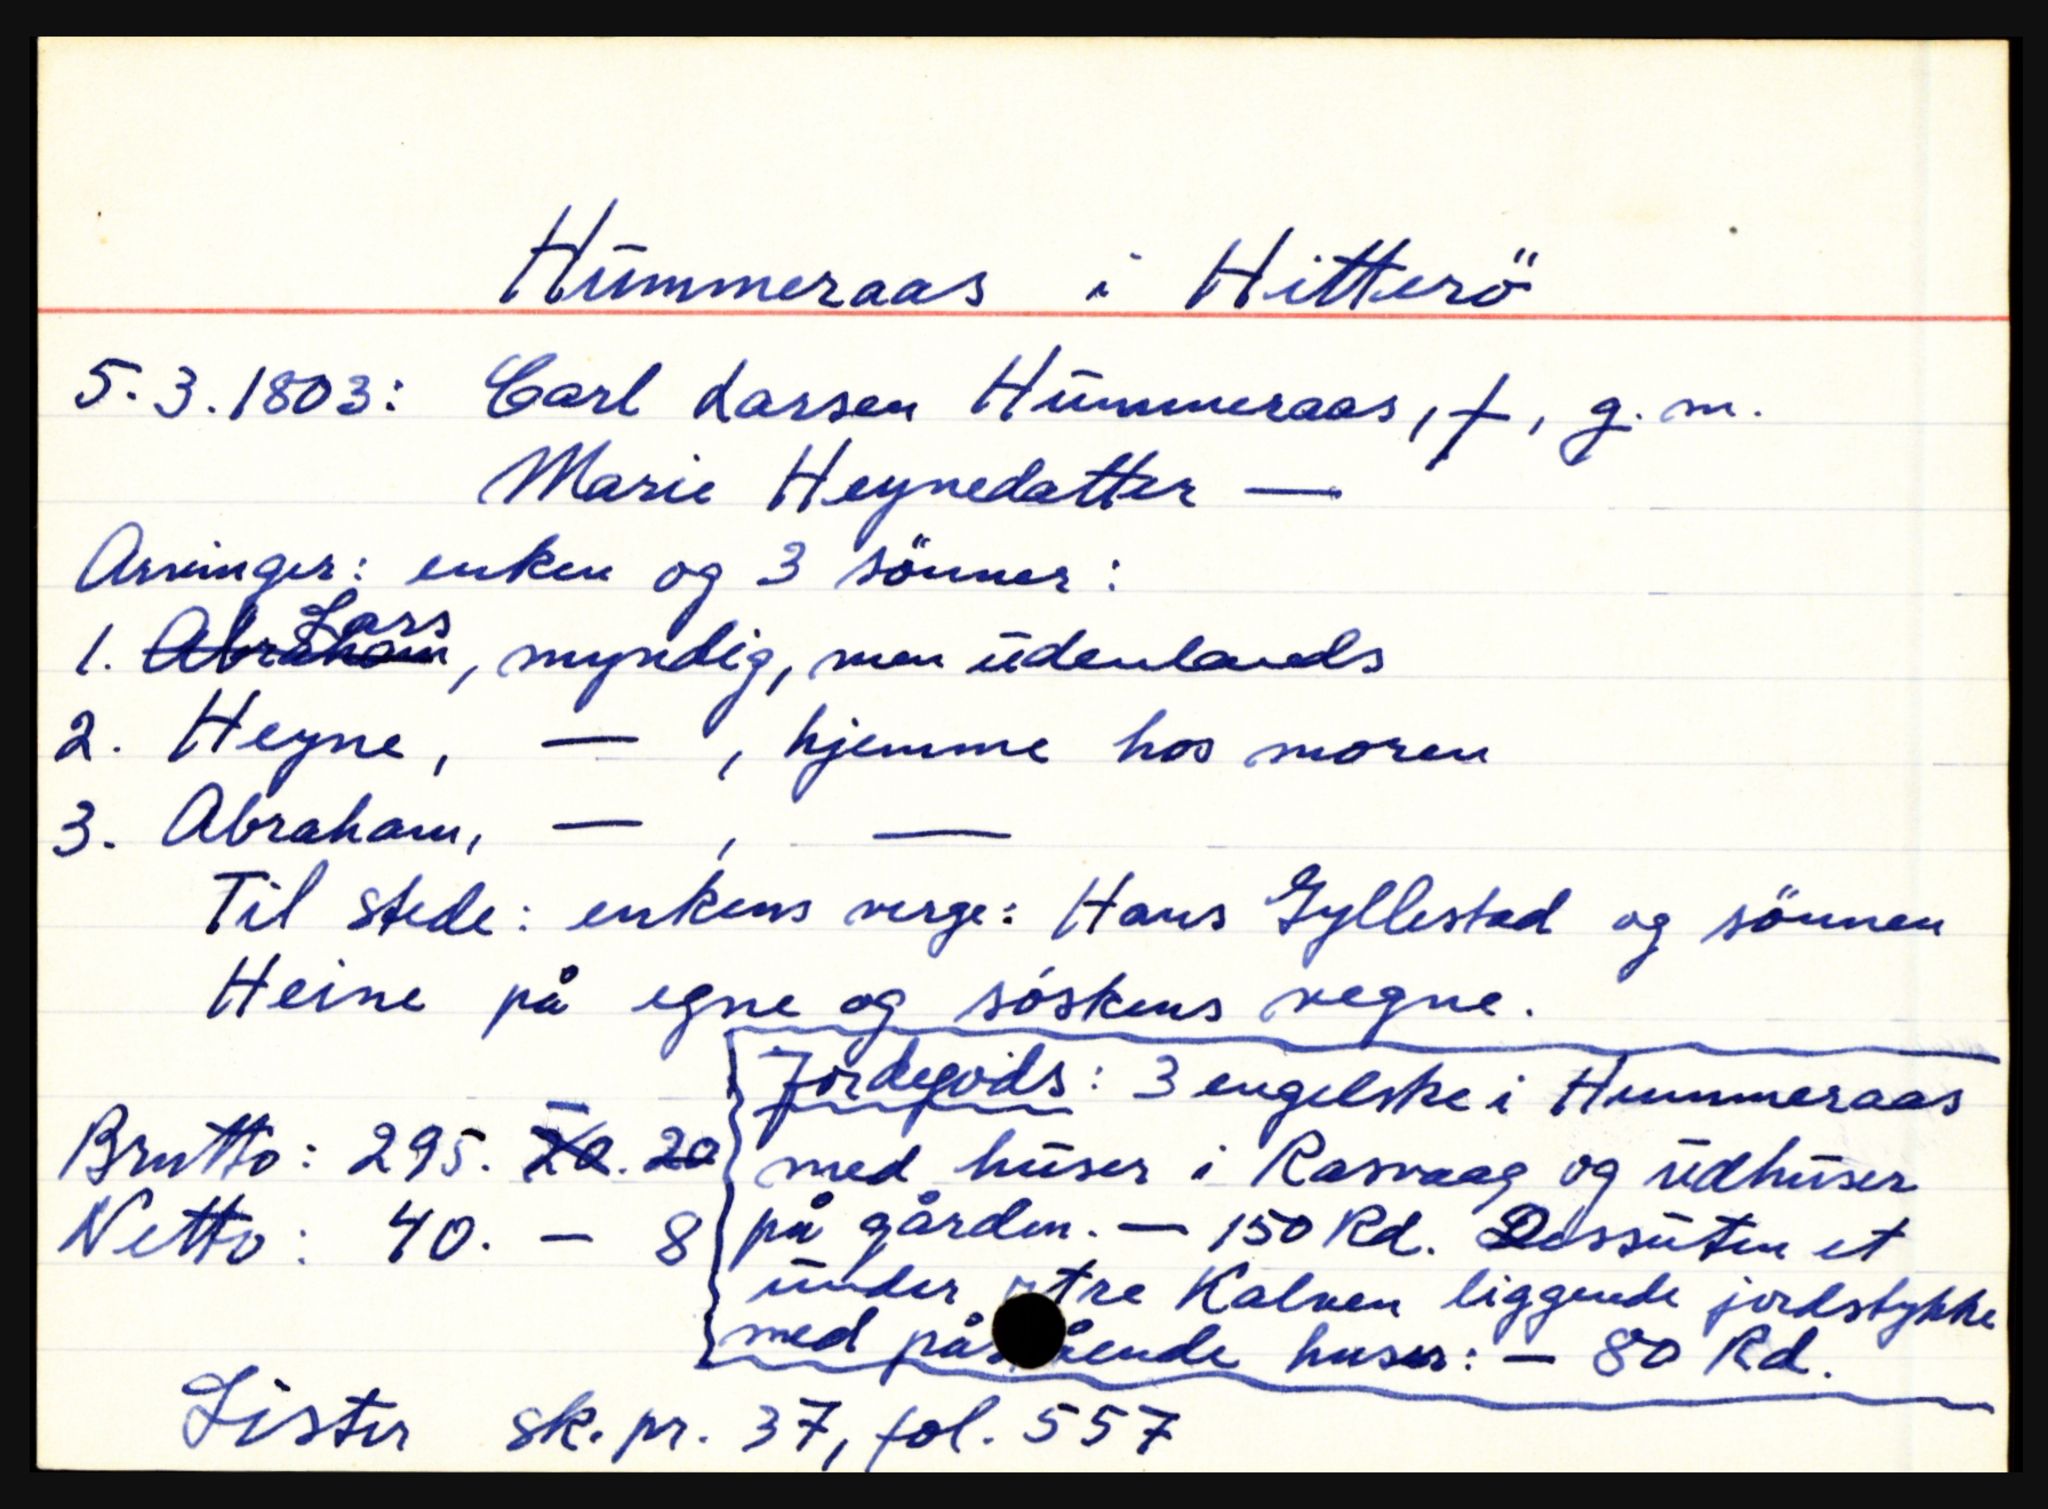 Hummeraas i Hitterö
5.3.1803: Carl Larsen Hummeraas, †, g. m.
Marie Heynedatter —
Arvinger: enken og 3 sönner:
Lars
1. Abraham, myndig, men udenlands
2. Heyne, — , hjemme hos moren
3. Abraham, — , —
Til stede: enkens verge: Hans Gyllestad og sönnen
Heine på egne og söskens vegne.
Jordegods: 3 engelske i Hummeraas
med huser i Rasvaag og udhuser
på gården. — 150 Rd. Dessuten et
under ytre Kalven liggende jordstykke
med påstående huser: — 80 Rd.
Brutto: 295. 20. 20
Netto: 40. — 8
Lister sk. pr. 37, fol. 557